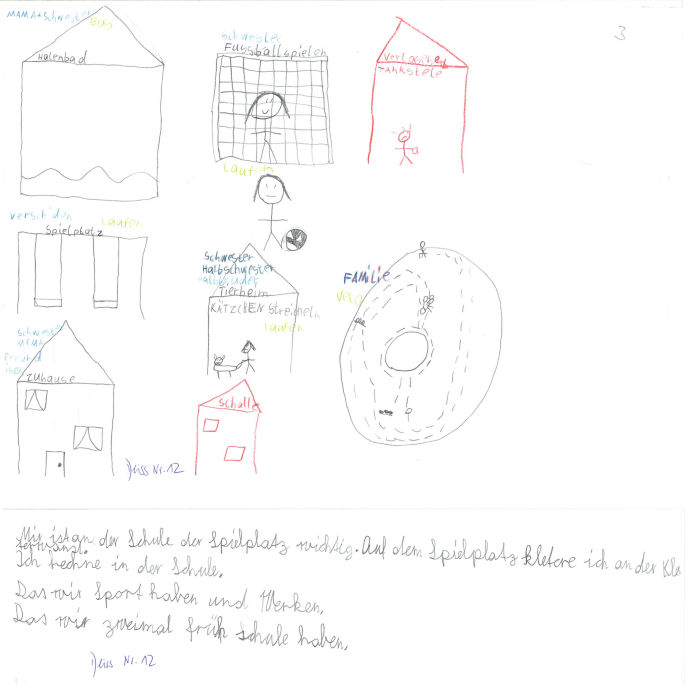 MAMA+Schwester
BUS
Halenbad
Schwester
Fussballspielen
3
Verlaschen
Tankstele
Laufen
Verschiden
Laufen
Spielplatz
Schwester
Halbschwester
Halbbruder
Tierheim
KÄTZCHEN Streicheln
Laufen
FAMiLiE
Velo
Schwester
MAMA
Freund
Zuhause
Schulle
Nr. 12
Mir ist an der Schule der Spielplatz wichtig. Auf dem Spielplatz kletere ich an der Kle
terwand.
Ich rechne in der Schule.
Das wir Sport haben und Werken.
Das wir zweimal früh schule haben.
Nr. 12